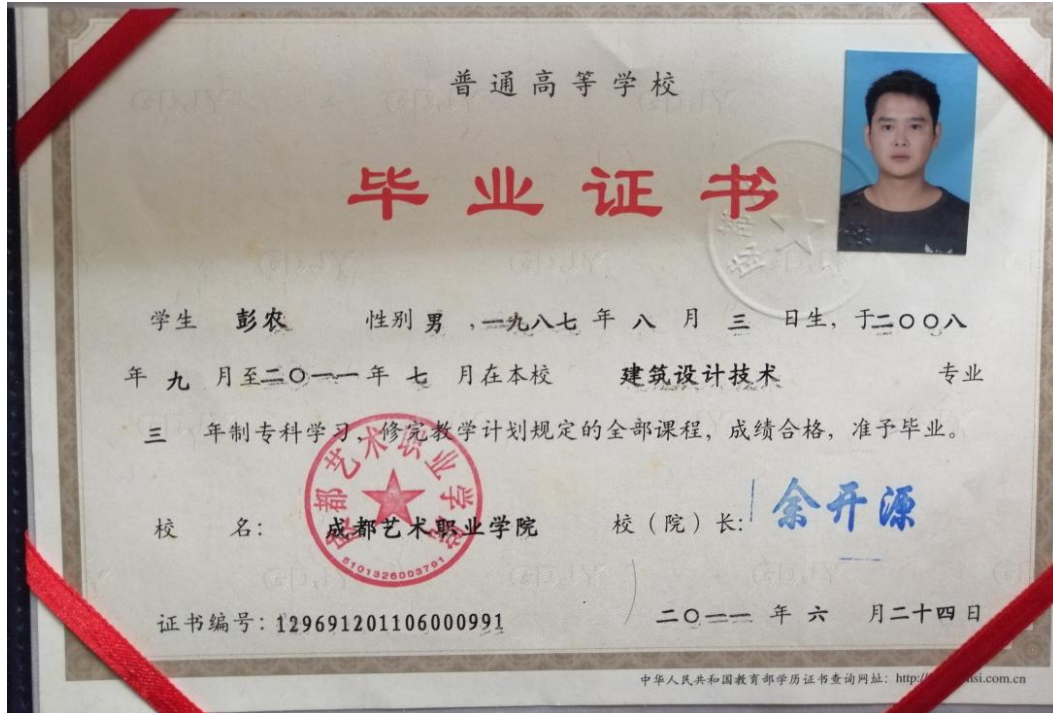 普通高等学校
毕业证书
学生 彭农 性别 男 ,一九八七 年 八 月 三 日生,于二〇〇八
年 九 月至二〇一一年 七 月在本校 建筑设计技术 专业
三 年制专科学习,修完教学计划规定的全部课程,成绩合格,准予毕业。
成都艺术职业学院
5101326003791
校 名: 成都艺术职业学院 校(院)长: 余开源
证书编号:129691201106000991 二〇一一 年 六 月二十四日
中华人民共和国教育部学历证书查询网址: http:// si.com.cn